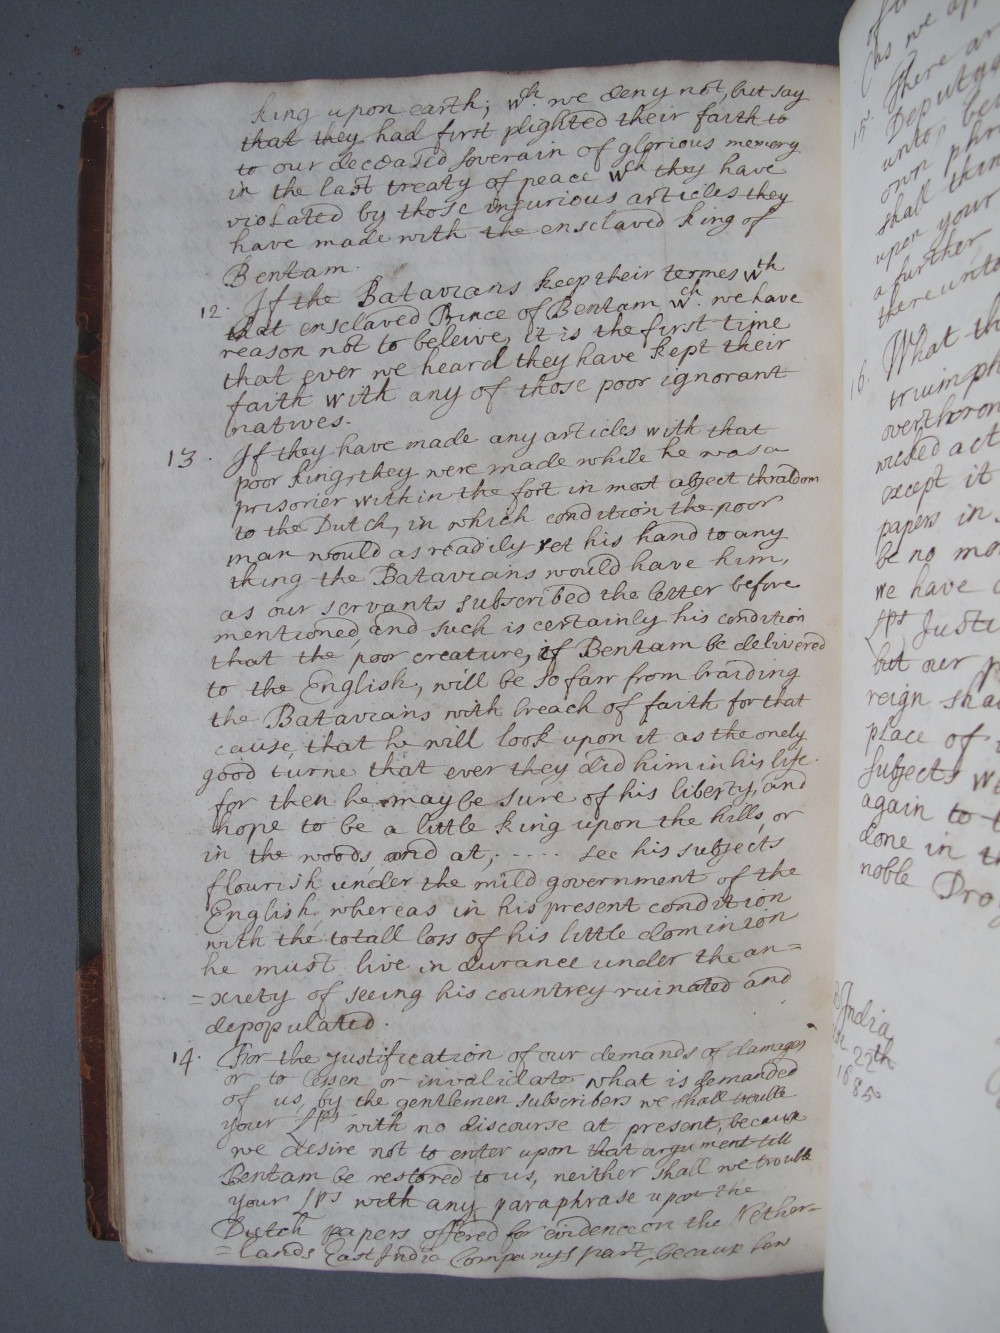 King upon earth; wch. we deny not, but say
that they had first plighted their faith to
to our deceased soverain of glorious memory
in the last treaty of peace wch they have
violated by those injurious articles they
have made with the enslaved King of
Bentam.
12. If the Batavians keep their termes wth
that enslaved Prince of Bentam wch. we have
reason not to beleive, it is the first time
that ever we heard they have kept their
faith with any of those poor ignorant
natives.
13. If they have made any articles with that
poor King, they were made while he was a
prisorier within the fort in most abject thraldom
to the Dutch, in which condition the poor
man would as readily set his hand to any
thing the Batavians would have him,
as our servants subscribed the letter before
mentioned, and such is certainly his condition
that the poor creature, if Bentam be delivered
to the English, will be so farr from braiding
the Batavians with breach of faith for that
cause, that he will look upon it as the onely
good turne that ever they did him in his life.
for then he may be sure of his liberty, and
hope to be a little King upon the hills, or
in the woods and at, ..... see his subjects
flourish under the mild government of the
English, whereas in his present condition
with the totall loss of his little dominion
he must live in durance under the an=
=xiety of seeing his countrey ruinated and
depopulated.
14. For the justification of our demands of damages
or to lessen or invalidate what is demanded
of us, by the gentlemen subscribers we shall trouble
your Lps with no discourse at present, because
we desire not to enter upon that argument till
Bentam be restored to us, neither shall we trouble
your Lps with any paraphrase upon the
Dutch papers offered for evidence on the Nether=
=lands East India Companys part, becaus how
(as we
15. There ar
Deputy
unto, be
own phr
shall thin
upon your
a further
thereunto
16. What th
triumph
overthrow
wicked act
except it
papers in
be no mo
we have
Lps Justi
but our
reign sha
place of
subjects w
again to
done in th
noble Pro
India
22th
1685.